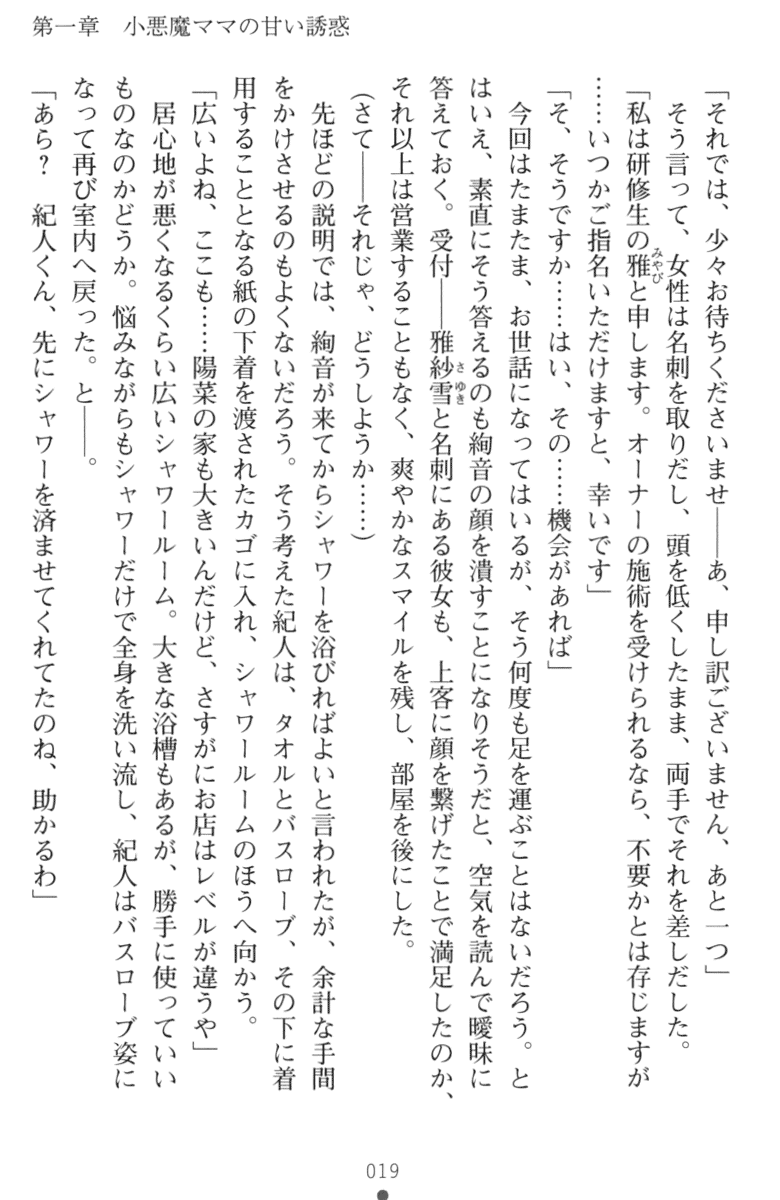 第一章　小悪魔ママの甘い誘惑
「それでは、少々お待ちくださいませ――あ、申し訳ございません、あと一つ」
そう言って、女性は名刺を取りだし、頭を低くしたまま、両手でそれを差しだした。
「私は研修生の雅と申します。オーナーの施術を受けられるなら、不要かとは存じますが
みやび
……いつかご指名いただけますと、幸いです」
「そ、そうですか……はい、その……機会があれば」
今回はたまたま、お世話になってはいるが、そう何度も足を運ぶことはないだろう。と
はいえ、素直にそう答えるのも絢音の顔を潰すことになりそうだと、空気を読んで曖昧に
答えておく。受付――雅紗雪と名刺にある彼女も、上客に顔を繋げたことで満足したのか、
さゆき
それ以上は営業することもなく、爽やかなスマイルを残し、部屋を後にした。
（さて――それじゃ、どうしようか……）
先ほどの説明では、絢音が来てからシャワーを浴びればよいと言われたが、余計な手間
をかけさせるのもよくないだろう。そう考えた紀人は、タオルとバスローブ、その下に着
用することとなる紙の下着を渡されたカゴに入れ、シャワールームのほうへ向かう。
「広いよね、ここも……陽菜の家も大きいんだけど、さすがにお店はレベルが違うや」
居心地が悪くなるくらい広いシャワールーム。大きな浴槽もあるが、勝手に使っていい
ものなのかどうか。悩みながらもシャワーだけで全身を洗い流し、紀人はバスローブ姿に
なって再び室内へ戻った。と――。
「あら？　紀人くん、先にシャワーを済ませてくれてたのね、助かるわ」
019